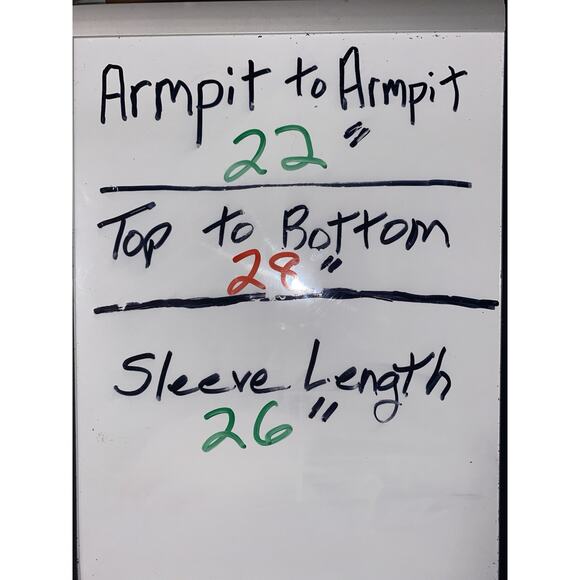 Armpit to Armpit
22"
Top to Bottom
28"
Sleeve Length
26"